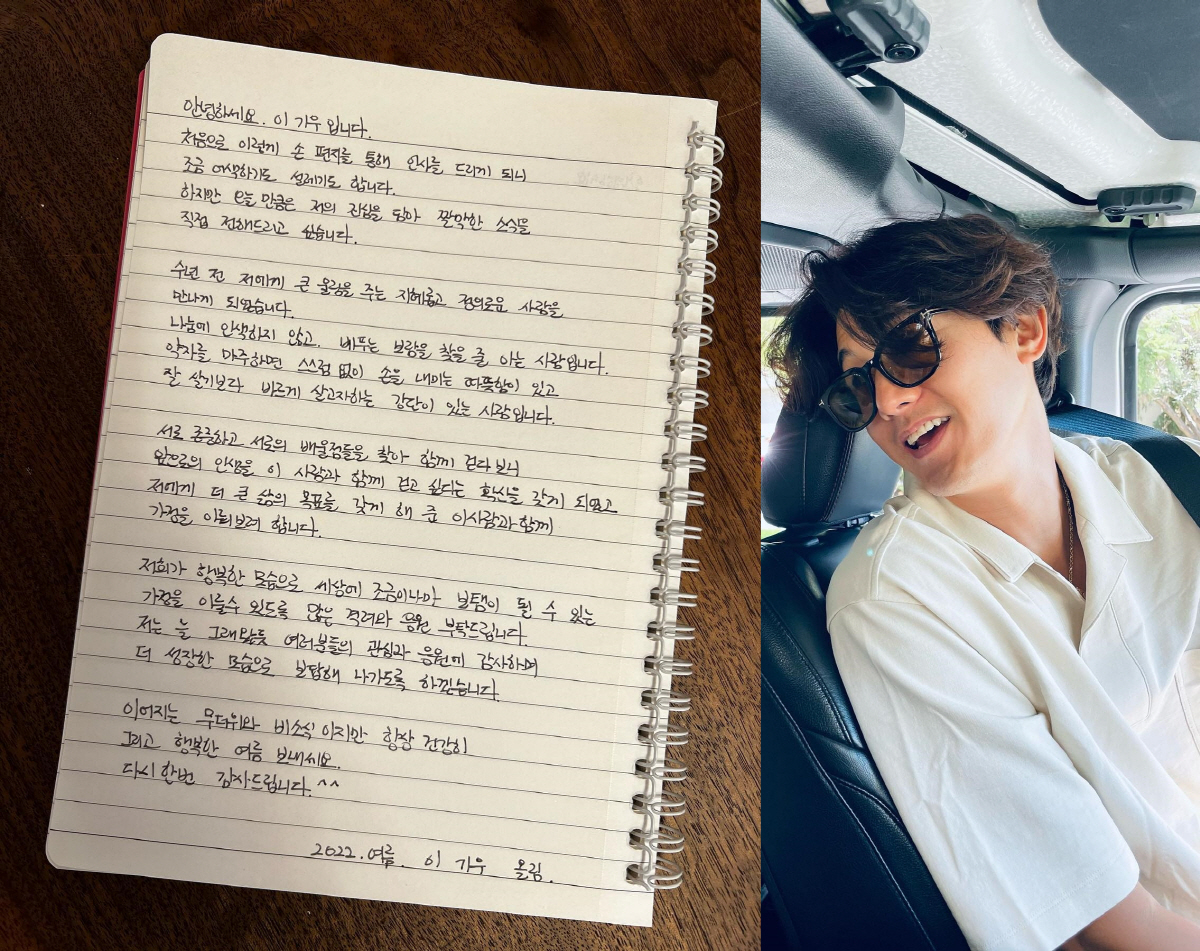 안녕하세요. 이 가우 입니다.
처음으로 이렇게 손 편지를 통해 인사를 드리게 되니
조금 어색하기도 설레기도 합니다.
하지만 오늘 만큼은 저의 진심을 담아 짤막한 소식을
직접 전해드리고 싶습니다.
수년 전 저에게 큰 울림을 주는 지혜롭고 정의로운 사람을
만나게 되었습니다.
나눔에 인색하지 않고, 베푸는 보람을 찾을 줄 아는 사람입니다.
약자를 마주하면 스스럼 없이 손을 내미는 따뜻함이 있고
잘 살기보다 바르게 살고자하는 강단이 있는 사람입니다.
서로 존중하고 서로의 배울점들을 찾아 함께 걷다 보니
앞으로의 인생을 이 사람과 함께 걷고 싶다는 확신을 갖게 되었고
저에게 더 큰 삶의 목표를 갖게 해 준 이사람과 함께
가정을 이뤄보려 합니다.
저희가 행복한 모습으로 세상에 조금이나마 보탬이 될 수 있는
가정을 이룰수 있도록 많은 격려와 응원 부탁드립니다.
저는 늘 그래왔듯 여러분들의 관심과 응원에 감사하며
더 성장한 모습으로 보답해 나가도록 하겠습니다.
이어지는 무더위와 비소식 이지만 항상 건강히
그리고 행복한 여름 보내세요.
다시 한번 감사드립니다. ^^
2022. 여름. 이 가우 올림.